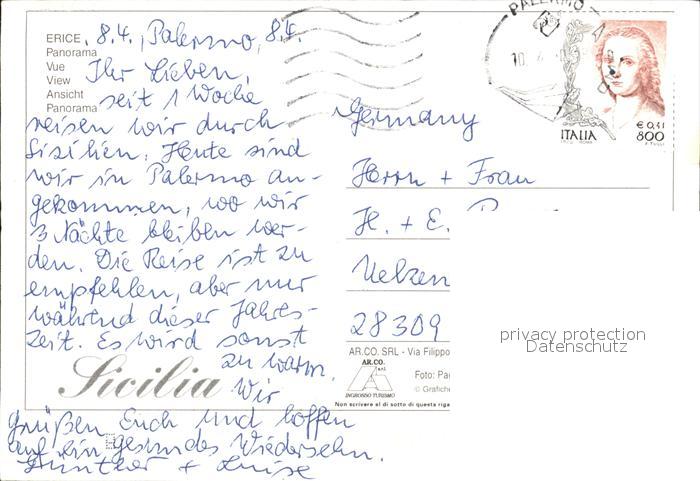 ERICE
Panorama
Vue
View
Ansicht
Panorama
8.4., Palermo, 8.4.
Ihr Lieben,
seit 1 Woche
reisen wir durch
Sizilien. Heute sind
wir in Palermo an-
gekommen, wo wir
3 Nächte bleiben wer-
den. Die Reise ist zu
empfehlen, aber nur
während dieser Jahres-
zeit. Es wird sonst
zu warm.
Wir
grüßen Euch und hoffen
auf ein gesundes Wiedersehn.
Günther + Luise
Sicilia
PALERMO
10.
ITALIA
€ 0,41
800
Germany
Herrn + Frau
H. + E.
Uelzen
28309
privacy protection
Datenschutz
AR.CO. SRL - Via Filippo
AR.CO.
srl
INGROSSO TURISMO
Foto:
© Grafiche
Non scrivere al di sotto di questa riga